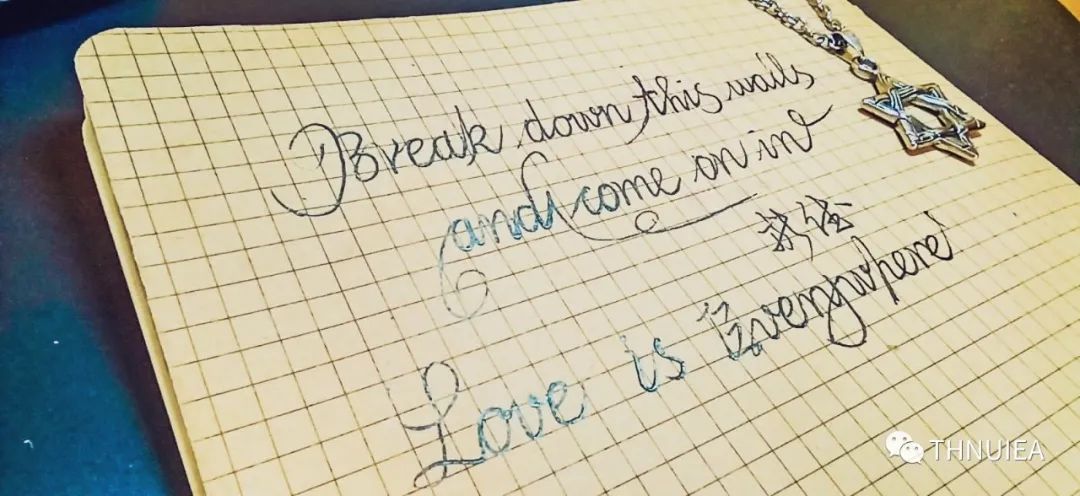 Break down this walls
and come on in
Love is Everywhere!
THNUIEA